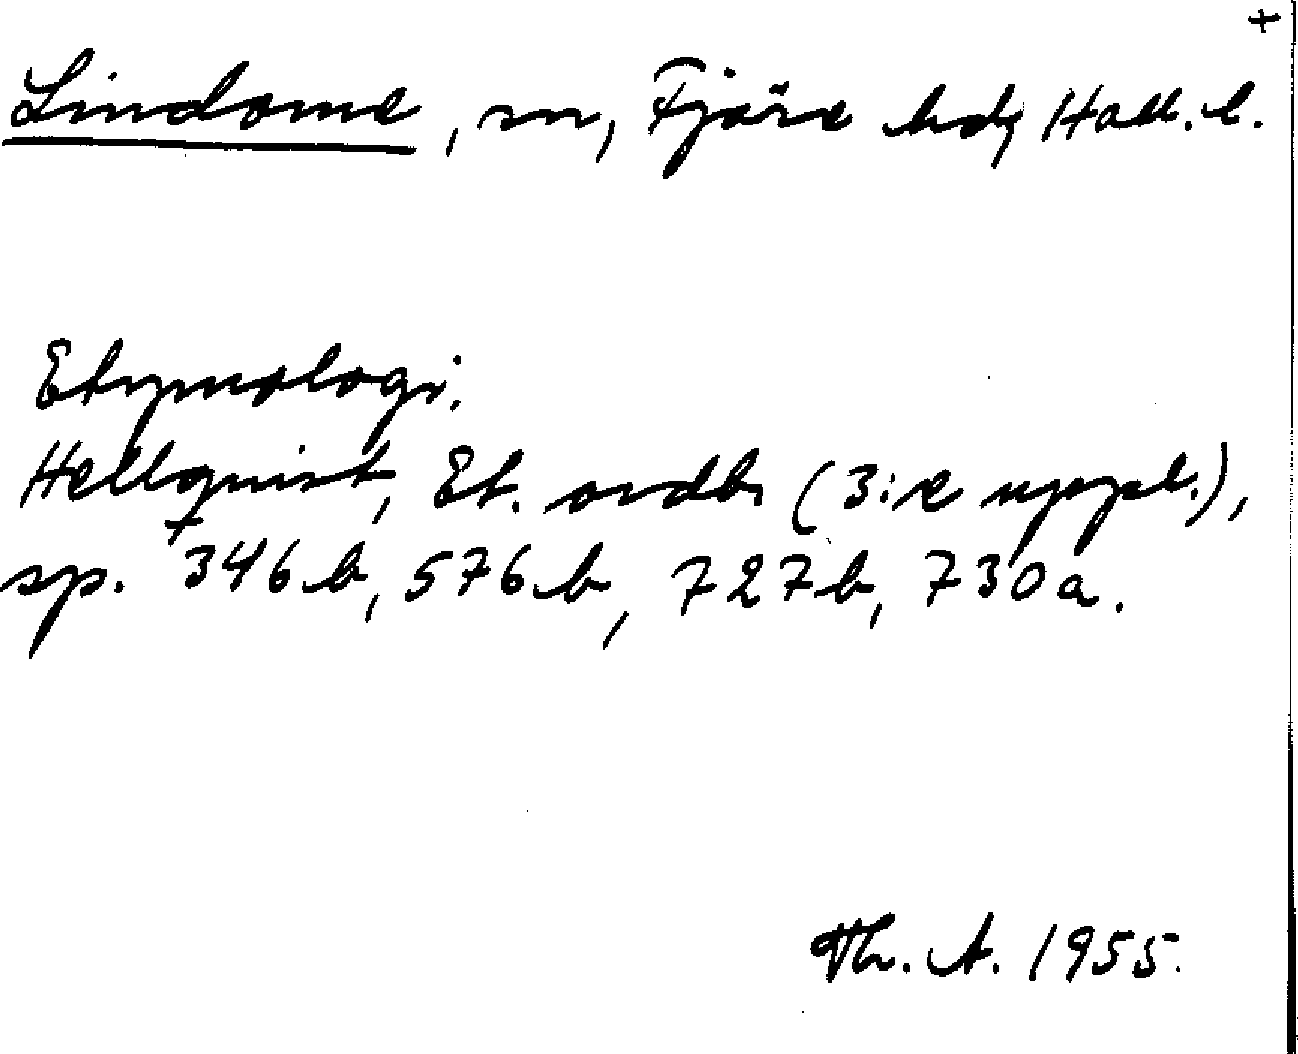 +
Lindome, sn, Fjäre hd, Hall. l.
Etymologi.
Hellquist, Et. ordb. (3:e uppl.),
sp. +346 b, 576 b, 727 b, 730 a.
Th. A. 1955.